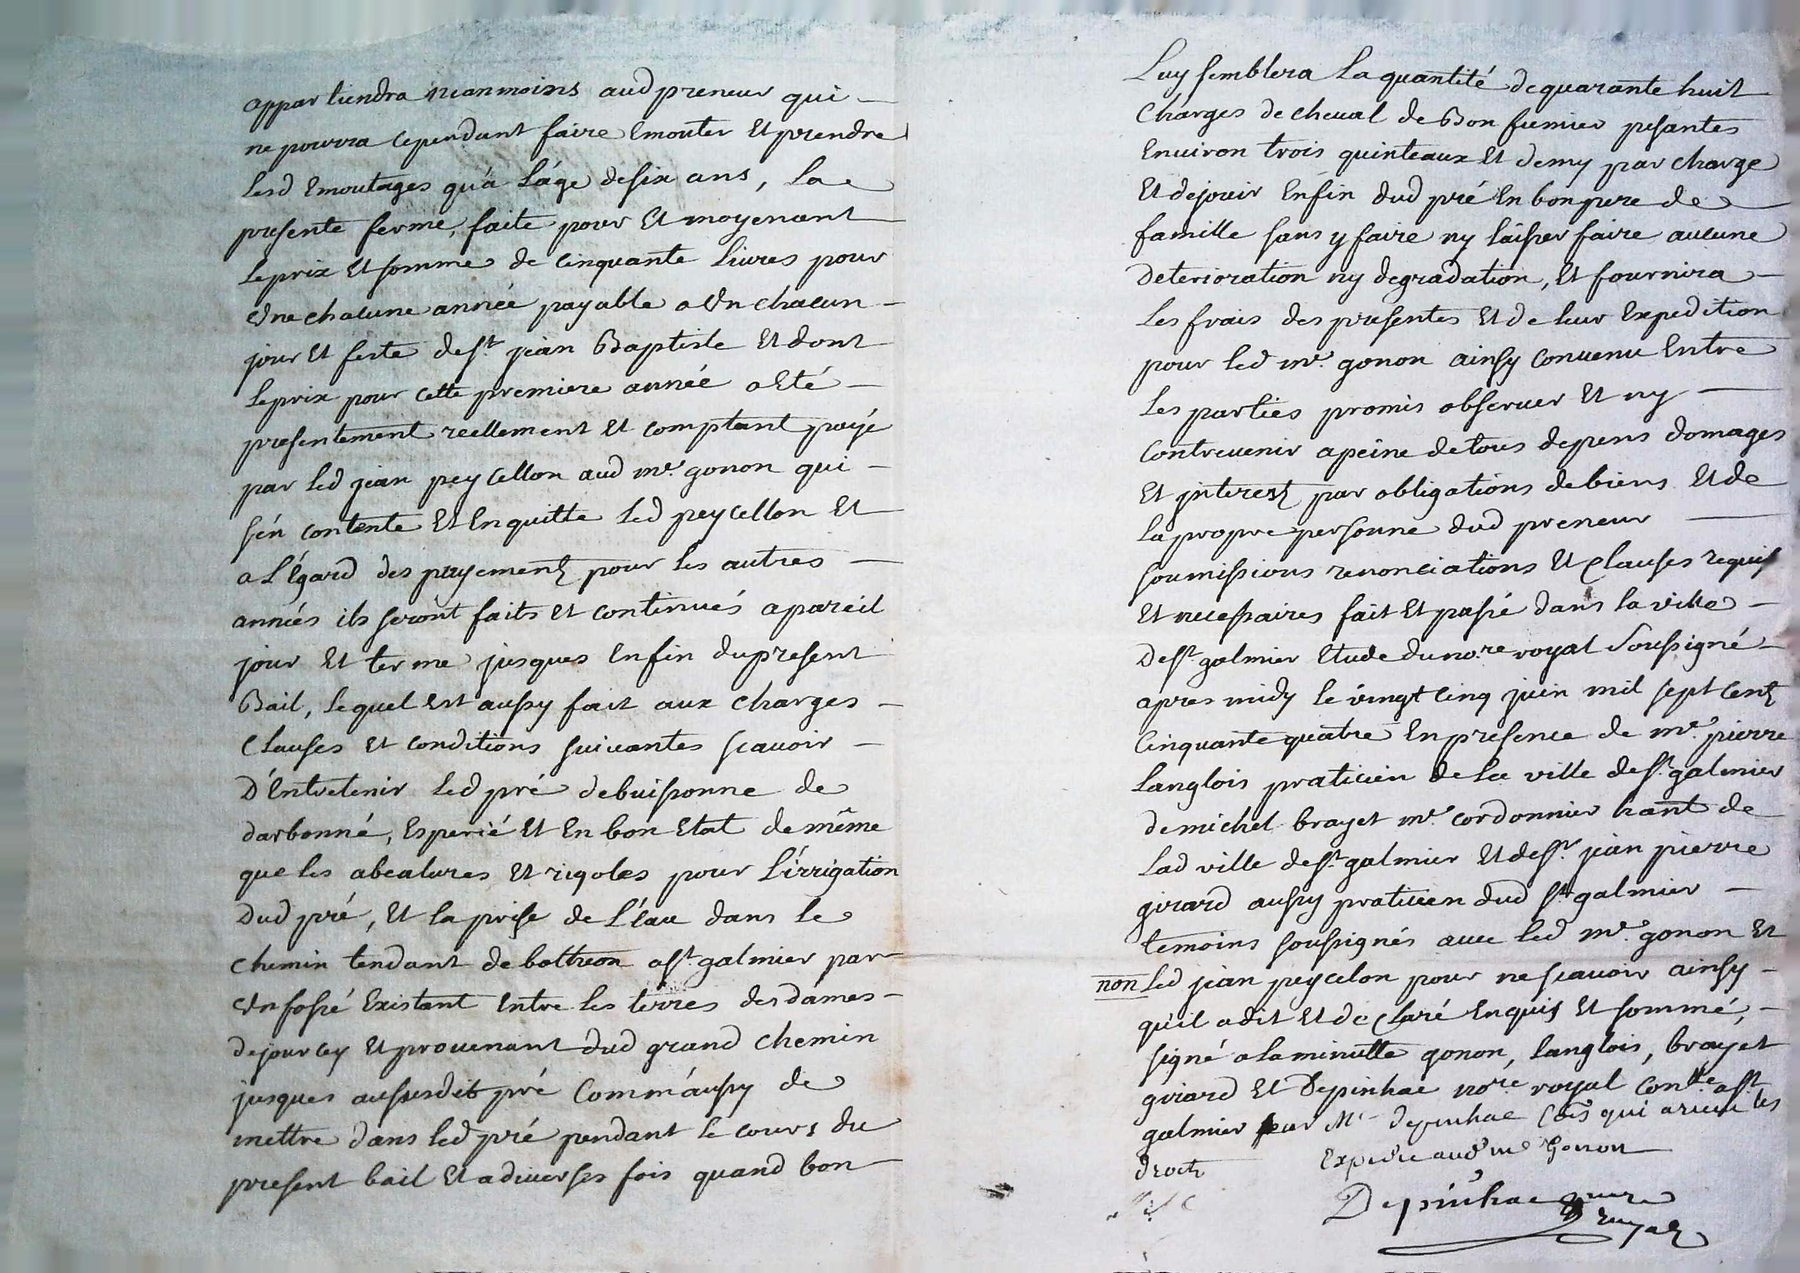 appartiendra néanmoins aud preneur qui
ne pourra cependant faire Emouter Et prendre
lesd Emoutages qu'a l'áge de six ans, La
presente ferme, faite pour Et moyenant
Le prix Et somme de Cinquante Livres pour
Une chacune année payable a Un chacun
jour Et feste de St. jean Baptiste Et dont
Le prix pour cette premiere année a Eté
presentement reellement Et comptant payé
par led jean peycellon aud me. gonon qui
s'en contente Et En quitte Led peycellon Et
a L'Egard des payements pour Les autres
années ils seront faits Et continués a pareil
jour Et terme jusques En fin du present
Bail, Lequel est aussy fait aux Charges
Clauses Et conditions suivantes scavoir
D'Entretenir Led pré debuissonné de
darbonné, Esperié Et En bon Etat de même
que les abealures Et rigoles pour L'irrigation
Dud pré, Et la prise de L'éau dans le
chemin tendant de botheon a St. galmier par
Un fossé Existant Entre les terres des dames
de jourcey Et provenant dud grand chemin
jusques aussusdit pré Comm'aussy de
mettre dans led pré pendant le cours du
present bail Et a diverses fois quand bon
Luy semblera La quantité de quarante huit
Charges de cheval de Bon fumier pesantes
Environ trois quinteaux Et demy par charge
Et de jouir Enfin dud pré En bon pere de
famille sans y faire ny laisser faire aucune
Deterioration ny degradation, Et fournira
Les frais des presentes Et de leur Expedition
pour led me. gonon ainsy convenu Entre
Les parties promis observer Et ny
Contrevenir a peine de tous depens domages
Et jnterests par obligations de biens Et de
La propre personne dud preneur
soumissions renonciations Et Clauses requis
Et necessaires fait Et passé dans la ville
De St. galmier Etude du nore royal soussigné
apres midy le vingt cinq juin mil sept cents
Cinquante quatre En presence de me. pierre
Langlois praticien de La ville de St. galmier
de michel brayet me. cordonnier hant de
Lad ville de St. galmier Et de sr. jean pierre
girard aussy praticien dud St galmier
temoins soussignés avec led me. gonon Et
non led jean peycelon pour ne scavoir ainsy
qu'il a dit Et declaré Enquis Et sommé,
signé a la minutte gonon, langlois, brayet
girard Et Depinhac nore royal Conlle a St
galmier par Me Depinhac qui a receu les
droits
Expedié aud me Gonon
Depinhac
royal